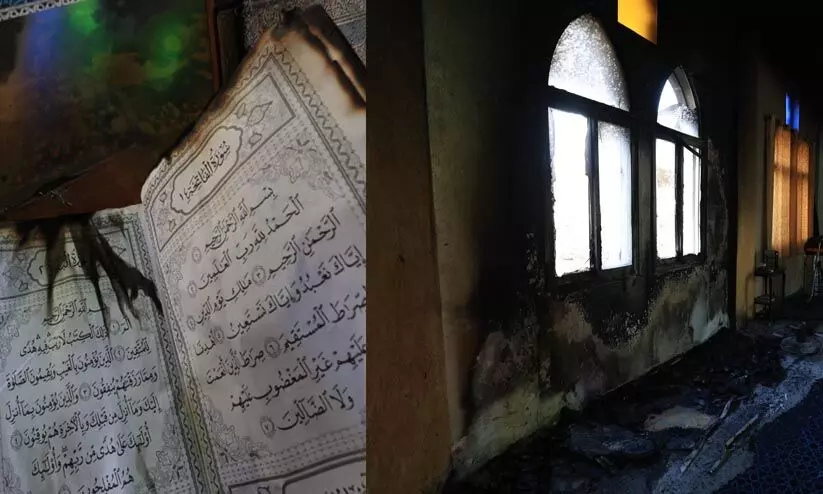 سُورَةُ الفَاتِحَةِ
بِسْمِ اللَّهِ الرَّحْمَٰنِ الرَّحِيمِ ١
الْحَمْدُ لِلَّهِ رَبِّ الْعَٰلَمِينَ ٢
الرَّحْمَٰنِ الرَّحِيمِ ٣ مَٰلِكِ يَوْمِ الدِّينِ ٤
إِيَّاكَ نَعْبُدُ وَإِيَّاكَ نَسْتَعِينُ ٥ اهْدِنَا
الصِّرَٰطَ الْمُسْتَقِيمَ ٦ صِرَٰطَ الَّذِينَ أَنْعَمْتَ
عَلَيْهِمْ غَيْرِ الْمَغْضُوبِ عَلَيْهِمْ
وَلَا الضَّالِّينَ ٧
بِسْمِ اللَّهِ الرَّحْمَٰنِ الرَّحِيمِ
ذَٰلِكَ الْكِتَٰبُ لَا رَيْبَ فِيهِ هُدًى
لِلْمُتَّقِينَ ٢ الَّذِينَ يُؤْمِنُونَ بِالْغَيْبِ وَيُقِيمُونَ الصَّلَوٰةَ
وَمِمَّا رَزَقْنَٰهُمْ يُنفِقُونَ ٣ وَالَّذِينَ يُؤْمِنُونَ بِمَا أُنزِلَ
إِلَيْكَ وَمَا أُنزِلَ مِن قَبْلِكَ وَبِالْءَاخِرَةِ هُمْ يُوقِنُونَ ٤
أُو۟لَٰئِكَ عَلَىٰ هُدًى مِّن رَّبِّهِمْ وَأُو۟لَٰئِكَ
هُمُ الْمُفْلِحُونَ